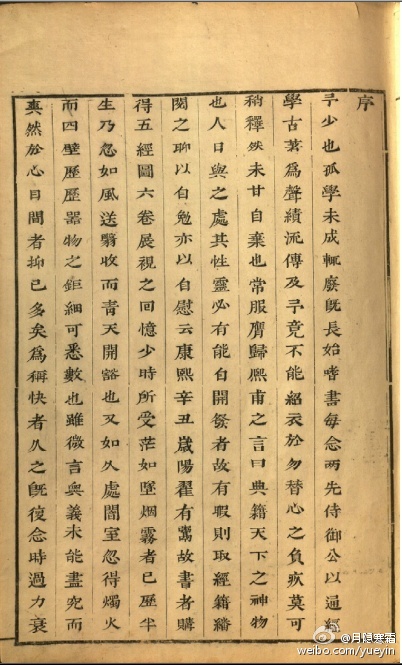 序
予少也孤學未成輒廢旣長始嗜書每念两先侍御公以通經
學古著爲聲績流傳及予竟不能紹衣於勿替心之負疚莫可
稍釋然未甘自棄也常服膺歸熙甫之言曰典籍天下之神物
也人日與之處其性靈必有能自開發者故有暇則取經籍繙
閱之聊以自勉亦以自慰云康熙辛丑歲陽翟有鬻故書者購
得五經圖六卷展視之回憶少時所受茫如墜烟霧者已歷半
生乃忽如風送翳收而青天開豁也又如久處闇室忽得燭火
而四壁歷歷器物之鉅細可悉數也雖微言奥義未能盡究而
爽然於心目間者抑已多矣爲稱快者久之旣復念時過力衰
@月隐寒霜
weibo.com/yueyin